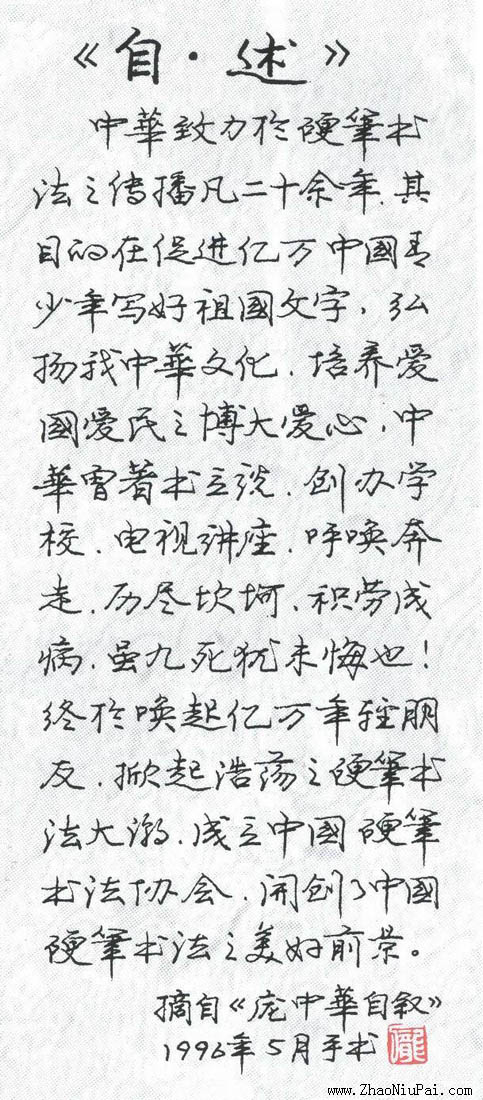 《自·述》
中華致力於硬筆书
法之传播凡二十余年.其
目的在促进亿万中國青
少年写好祖國文字,弘
扬我中華文化.培养爱
國爱民之博大爱心,中
華曾著书立说.创办学
校.电视讲座.呼唤奔
走.历尽坎坷.积劳成
病.虽九死犹未悔也!
终於唤起亿万年轻朋
友.掀起浩荡之硬筆书
法大潮.成立中國硬筆
书法协会.开创了中國
硬筆书法之美好前景。
摘自《庞中華自叙》
1996年5月手书
www.ZhaoNiuPai.com